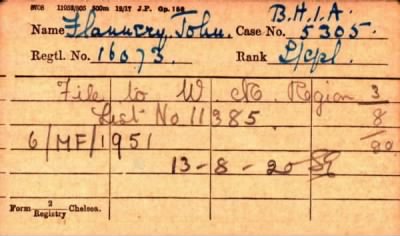 5708 11952/905 500m 12/17 J.P. Gp. 158
B.H.I.A.
Name Flannery, John. Case No. 5305.
Regtl. No. 16073. Rank L/cpl.
File to W Region 3
List No 11385. 8
6/MF/1951 80
13-8-20
Form 2/Registry Chelsea.